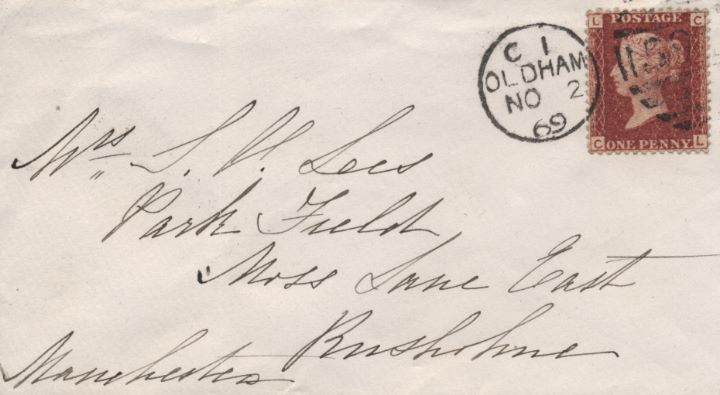 L POSTAGE C
C L ONE PENNY
C 1
OLDHAM
NO 2
69
Mrs S. H. Lees
Park Field
Moss Lane East
Rusholme
Manchester